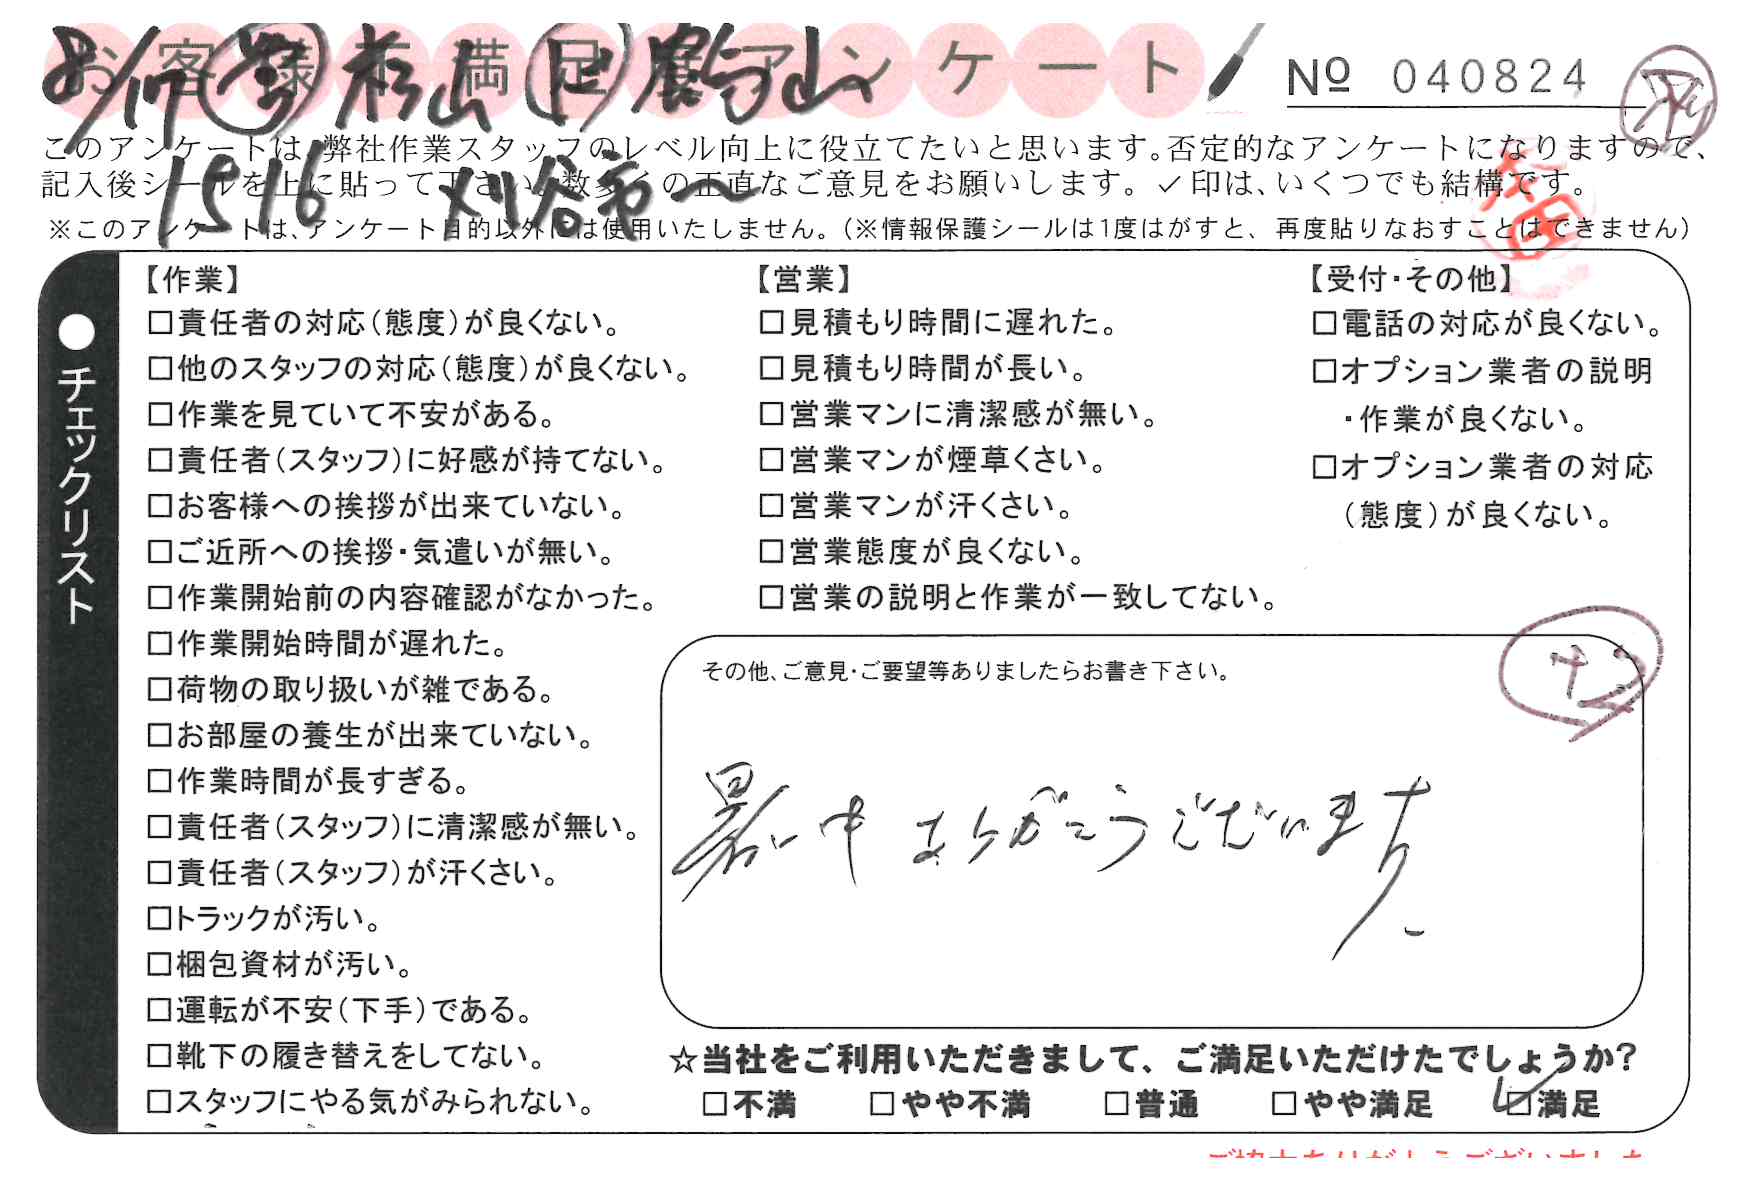 お客様不満足度アンケート
No 040824
8/17 営 杉山 ド 影山
このアンケートは、弊社作業スタッフのレベル向上に役立てたいと思います。否定的なアンケートになりますので、
記入後シールを上に貼って下さい。数多くの正直なご意見をお願いします。✓印は、いくつでも結構です。
1516 刈谷市〜
※このアンケートは、アンケート目的以外には使用いたしません。(※情報保護シールは1度はがすと、再度貼りなおすことはできません)
●チェックリスト
【作業】
□責任者の対応(態度)が良くない。
□他のスタッフの対応(態度)が良くない。
□作業を見ていて不安がある。
□責任者(スタッフ)に好感が持てない。
□お客様への挨拶が出来ていない。
□ご近所への挨拶・気遣いが無い。
□作業開始前の内容確認がなかった。
□作業開始時間が遅れた。
□荷物の取り扱いが雑である。
□お部屋の養生が出来ていない。
□作業時間が長すぎる。
□責任者(スタッフ)に清潔感が無い。
□責任者(スタッフ)が汗くさい。
□トラックが汚い。
□梱包資材が汚い。
□運転が不安(下手)である。
□靴下の履き替えをしてない。
□スタッフにやる気がみられない。
【営業】
□見積もり時間に遅れた。
□見積もり時間が長い。
□営業マンに清潔感が無い。
□営業マンが煙草くさい。
□営業マンが汗くさい。
□営業態度が良くない。
□営業の説明と作業が一致してない。
【受付・その他】
□電話の対応が良くない。
□オプション業者の説明
・作業が良くない。
□オプション業者の対応
(態度)が良くない。
その他、ご意見・ご要望等ありましたらお書き下さい。
暑い中 ありがとうございます。
☆当社をご利用いただきまして、ご満足いただけたでしょうか?
□不満 □やや不満 □普通 □やや満足 ☑満足
ご協力ありがとうございました